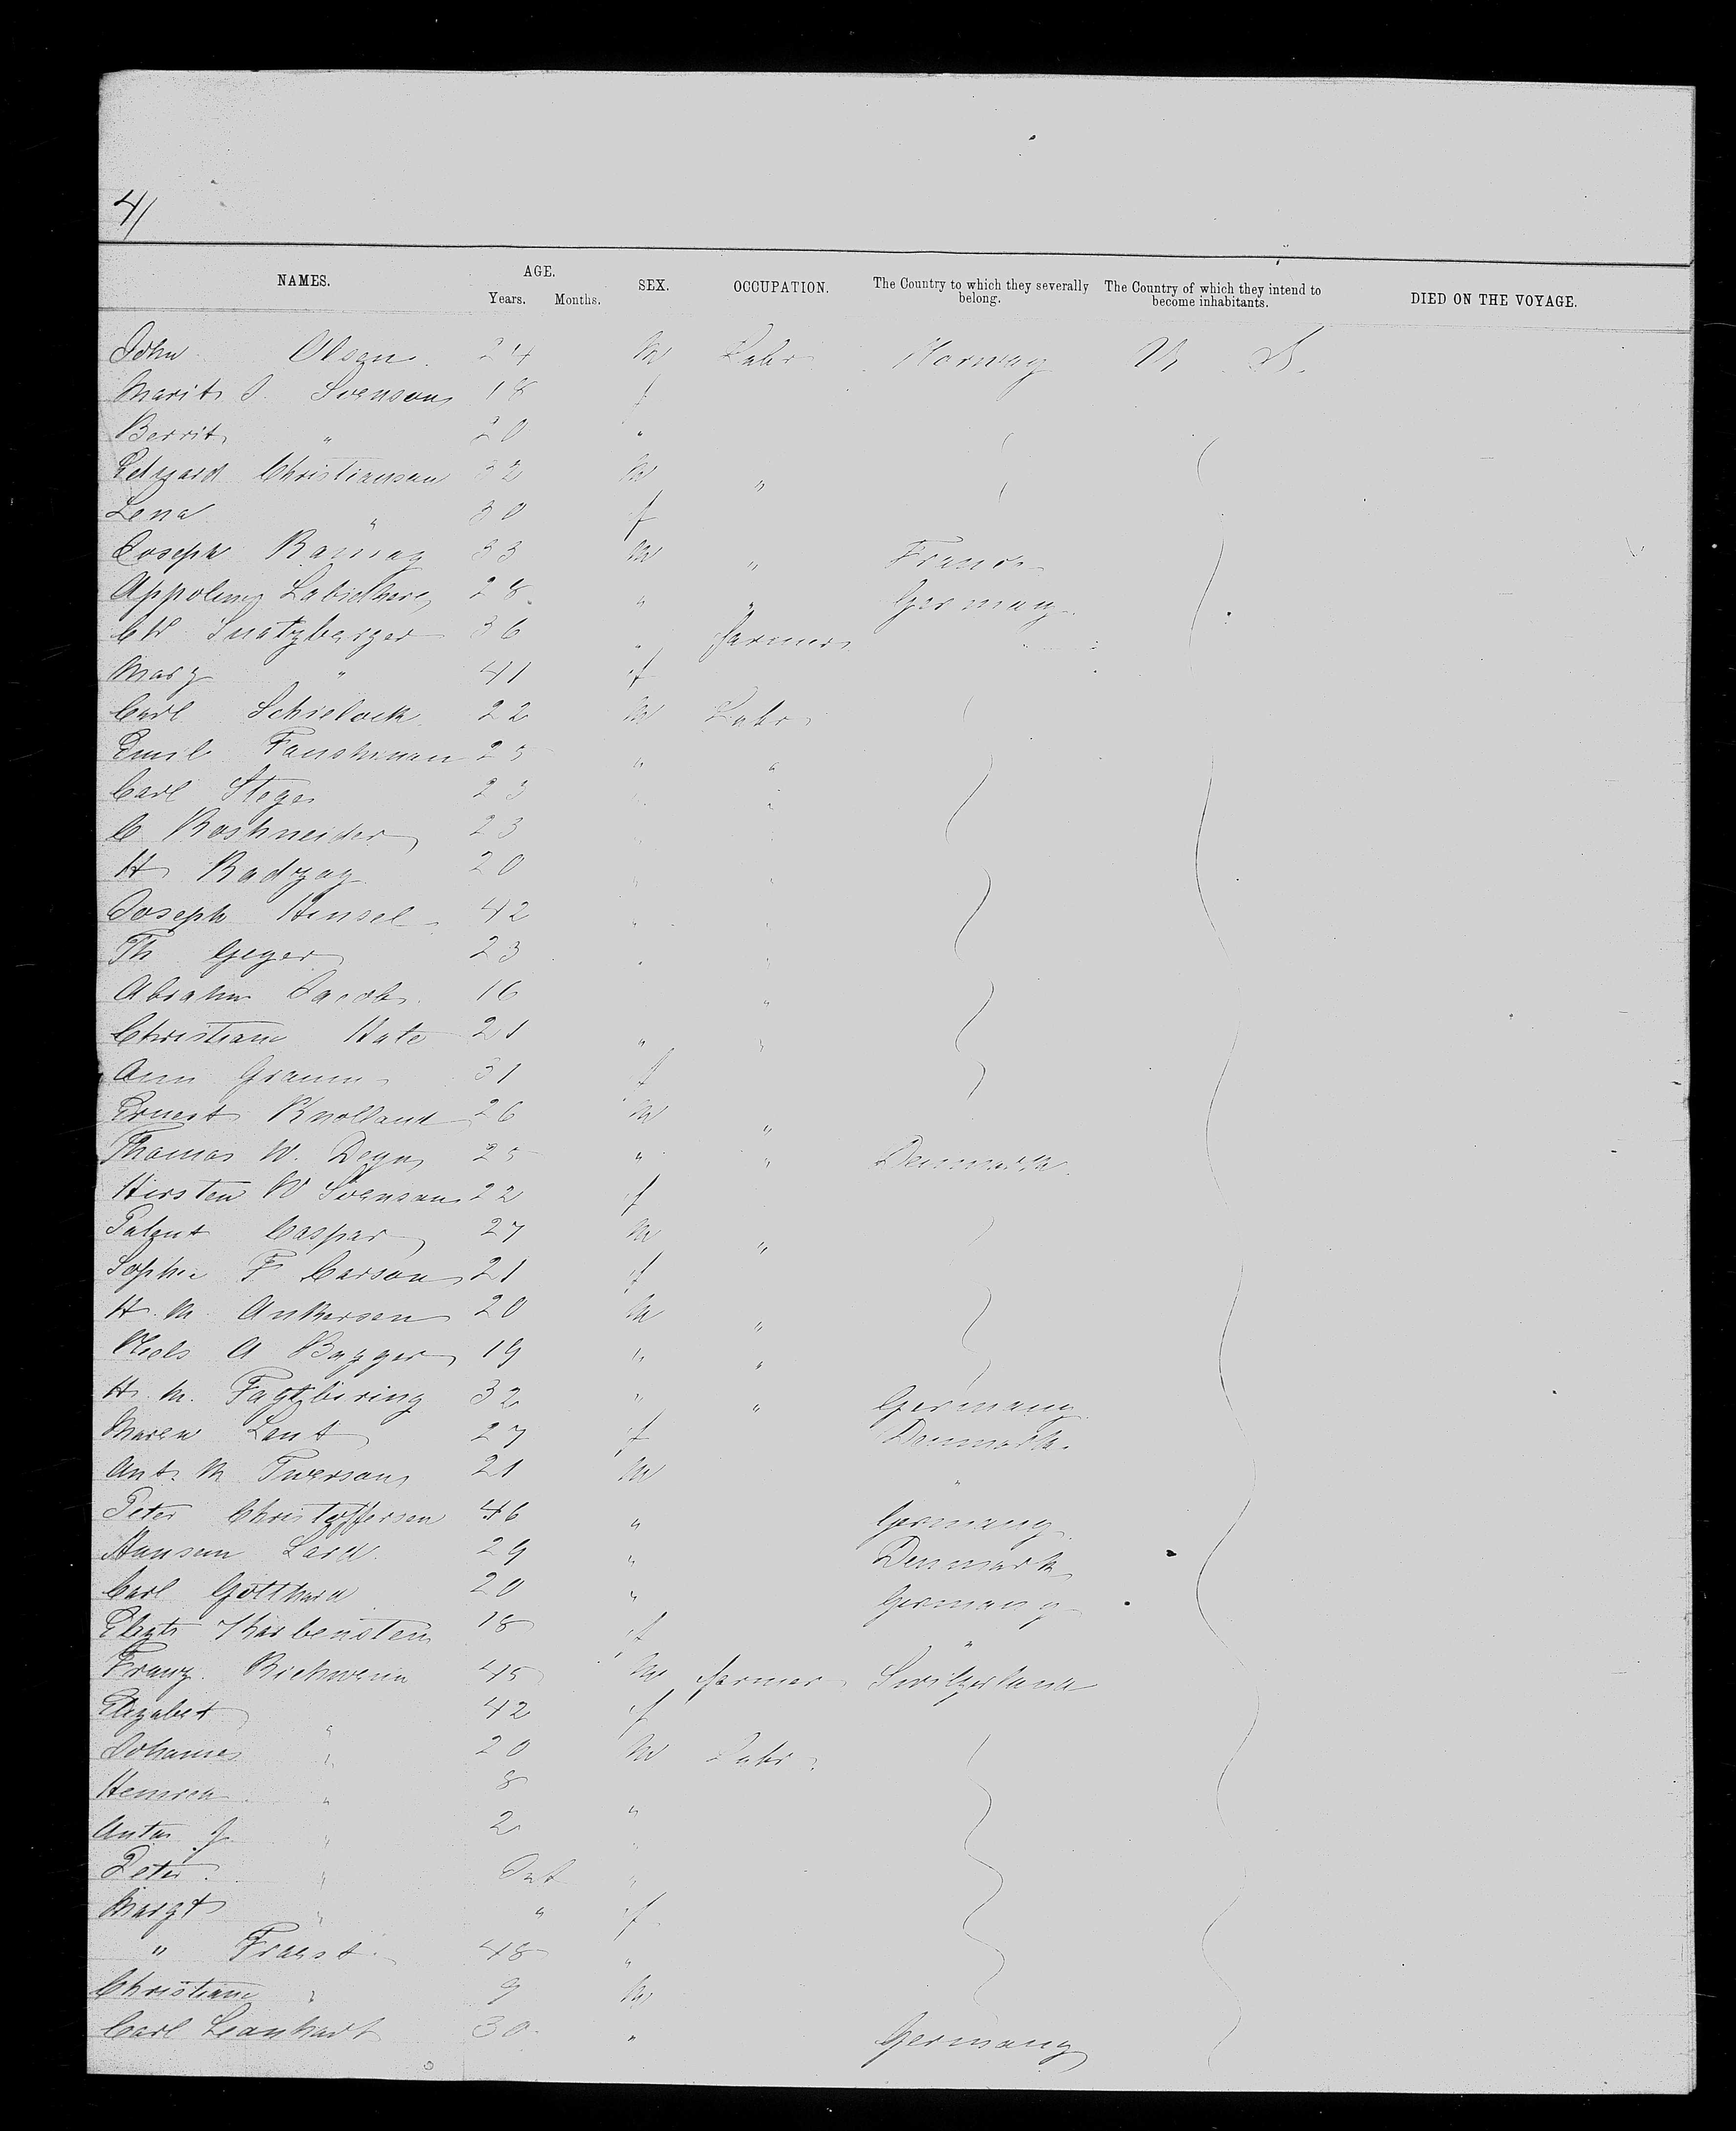 41
NAMES. AGE. SEX. OCCUPATION. The Country to which they severally belong. The Country of which they intend to become inhabitants. DIED ON THE VOYAGE.
Years. Months.
John Olsen 24 M Labr Norway U. S.
Marit J. Svenson 18 f
Berrit " 20 "
Edward Christiansen 32 M "
Lena " 30 f
Joseph 33 M " France
28 " " Germany
36 " farmer
Mary " 41 f
Carl Schielock 22 M Labr
Emil 25 " "
Carl Steger 23
C 23
H 20
Joseph Hensel 42
Th Geyer 23
Abraham Jacobs 16 "
Christian Hate 21 " "
Ann Gramm 31 f
Ernest Knolland 26 M "
Thomas W. 25 " " Denmark
Kirsten W Svenson 22 f
Caspar 27 M "
Sophie F Carson 21 f
H. M. Ankersen 20 M "
Niels A Bagger 19 " "
H. M. 32 " " Germany
Maren Lant 27 f Denmark
Ant. M Iverson 21 M "
Peter Christoffersen 46 " Germany
Hansen Lard 29 " Denmark
Carl Gotthard 20 " Germany
18 f "
Franz 45 M farmer Switzerland
Elizabet " 42 f
Johannes " 20 M Labr
" 8 "
Anton J. " 2
Peter " Inf "
Margt " " f
" Fraest 48 "
Christian " 9 M
Carl Leonhart 30 " Germany